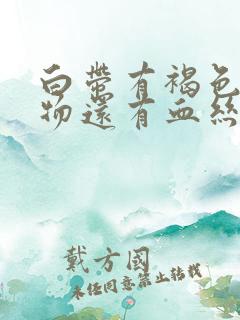 白带有褐色
物还有血丝
戴方国
未经同意禁止转载